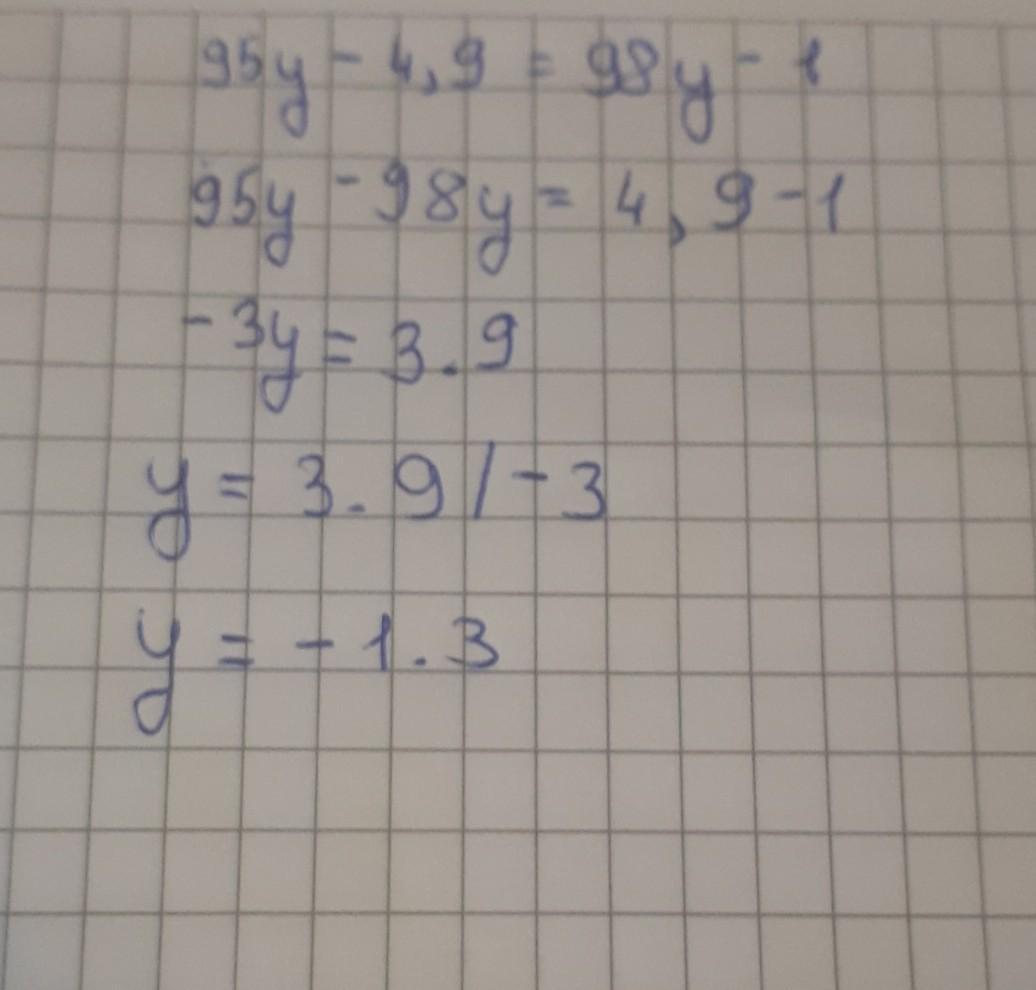 95y - 4,9 = 98y - 1
95y - 98y = 4,9 - 1
-3y = 3.9
y = 3.9 / -3
y = -1.3